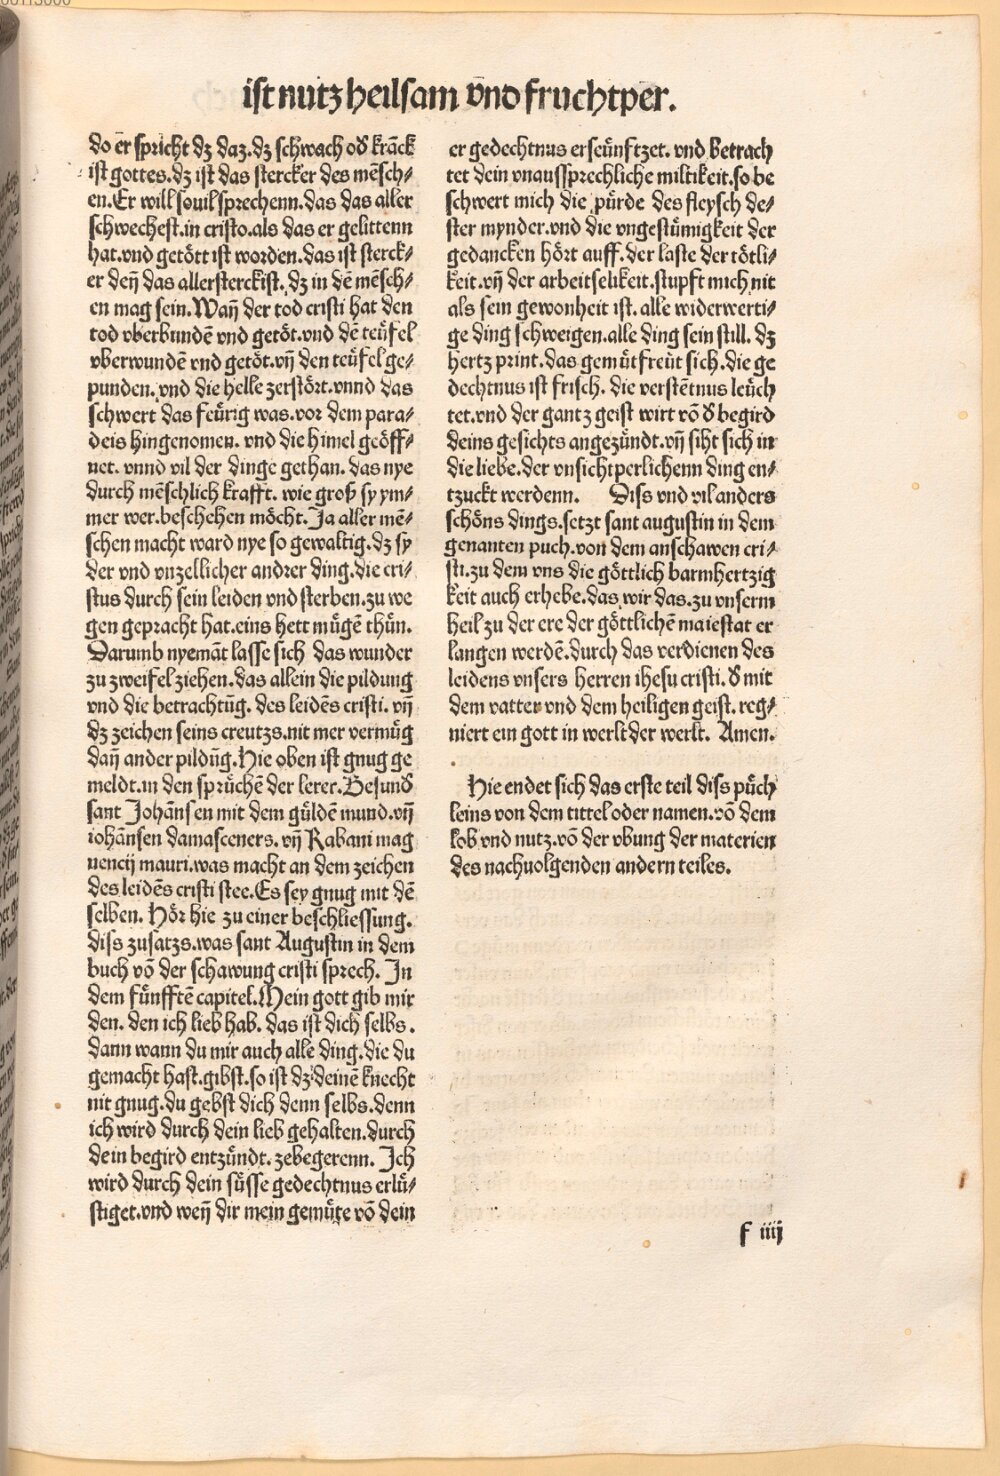 ist nutz heilsam vnd fruchtper.
do er spricht dz daz. dz schwach oď kra᷑ck
ist gottes. dz ist das stercker des mẽsch⸗
en. Er will souil sprechenn. das das aller
schwechest. in cristo. als das er gelittenn
hat. vnd getött ist worden. das ist sterck⸗
er deñ das allersterckist. dz in dẽ mẽsch⸗
en mag sein. Wañ der tod cristi hat den
tod vberbundẽ vnd getöt. vnd dẽ teüfel
vberwundẽ vnd getöt. vñ den teüfel ge⸗
punden. vnd die helle zerstört. vnnd das
schwert das feürig was. vor dem para⸗
deis hingenomen. vnd die himel geöff⸗
net. vnnd vil der dinge gethan. das nye
durch mẽschlich krafft. wie groß sy ym⸗
mer wer. beschehen möcht. Ja aller mẽ⸗
schen macht ward nye so gewaltig. dz sy
der vnd vnzellicher andrer ding. die cri⸗
stus durch sein leiden vnd sterben. zu we
gen gepracht hat. eins hett mügẽ thůn.
Darumb nyemãt lasse sich das wunder
zu zweifel ziehen. das allein die pildung
vnd die betrachtũg. des leidẽs cristi. vñ
dz zeichen seins creutzs. nit mer vermüg
dañ ander pildũg. Hie oben ist gnug ge
meldt. in den sprüchẽ der lerer. Besunď
sant Johãnsen mit dem güldẽ mund. vñ
iohãnsen damasceners. vñ Rabani mag
nencij mauri. was macht an dem zeichen
des leidẽs cristi stee. Es sey gnug mit dẽ
selben. Hör hie zu einer beschliessung.
diss zusatzs. was sant Augustin in dem
buch võ der schawung cristi sprech. In
dem fünfftẽ capitel. Mein gott gib mir
den. den ich lieb hab. das ist dich selbs.
dann wann du mir auch alle ding. die du
gemacht hast. gibst. so ist dz deinẽ knecht
nit gnug. du gebst dich denn selbs. denn
ich wird durch dein lieb gehalten. durch
dein begird entzündt. zebegerenn. Ich
wird durch dein süsse gedechtnus erlü⸗
stiget. vnd weñ dir mein gemüte võ dein
er gedechtnus erseünftzet. vnd betrach
tet dein vnaussprechliche miltikeit. so be
schwert mich die pürde des fleysch de⸗
ster mynder. vnd die vngestümigkeit der
gedancken hört auff. der laste der tötli⸗
keit. vñ der arbeitselikeit. stupft mich nit
als sein gewonheit ist. alle widerwerti⸗
ge ding schweigen. alle ding sein still. dz
hertz print. das gemüt freüt sich. die ge
dechtnus ist frisch. die verstẽtnus leüch
tet. vnd der gantz geist wirt võ ď begird
deins gesichts angezündt. vñ siht sich in
die liebe. der vnsichtperlichenn ding en⸗
tzuckt werdenn. Diss vnd vil anders
schöns dings. setzt sant augustin in dem
genanten puch. von dem anschawen cri⸗
sti. zu dem vns die göttlich barmhertzig
keit auch erhebe. das wir das. zu vnserm
heil zu der ere der göttlichẽ maiestat er
langen werdẽ. durch das verdienen des
leidens vnsers herren ihesu cristi. ď mit
dem vatter vnd dem heiligen geist. reg⸗
niert ein gott in werlt der werlt. Amen.
Hie endet sich das erste teil diss püch
leins von dem tittel oder namen. võ dem
lob vnd nutz. võ der vbung der materien
des nachuolgenden andern teiles.
f iiij